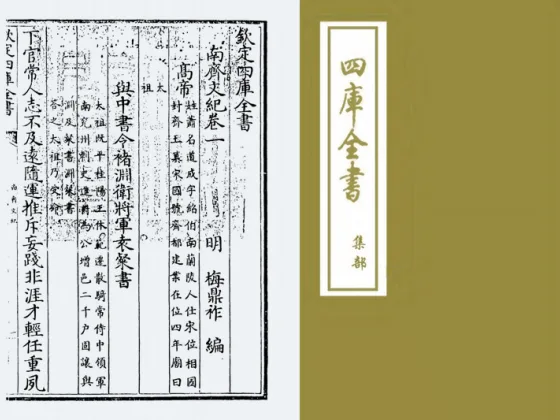 欽定四庫全書
南齊文紀卷一 明 梅鼎祚 編
高帝
姓蕭名道成字紹伯南蘭陵人仕宋位相國
封齊王篡宋國號齊都建業在位四年廟曰
太祖
與中書令褚淵衛將軍袁粲書
太祖既平桂陽王休範遷散騎常侍中領軍
南兖州刺史進爵為公增邑二千户固讓與
淵及粲書淵粲書
荅之太祖乃受命
下官常人志不及遠隨運推斥妄踐非涯才輕任重夙
欽定四庫全書
南齊文紀
四庫全書
集部